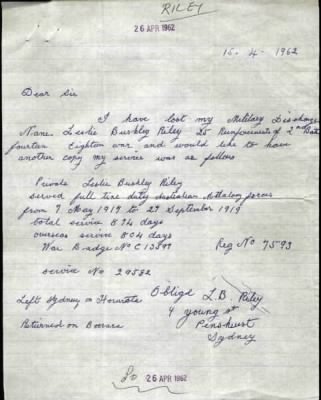 RILEY
26 APR 1962
15-4-1962
Dear Sir
I have lost my Military Discharge
Name Leslie Buckley Riley 25 Reinforcements of 2nd Batt
fourteen Eighteen war and would like to have
another copy my service was as follows
Private Leslie Buckley Riley
served full time duty Australian Military forces
from 7 May 1917 to 29 September 1919
total service 874 days
overseas service 804 days
War Badge No C 13899
Reg No 7593
service No 29582
Left Sydney on
Obliged L.B. Riley
Returned on
4 young st
Penshurst
Sydney
26 APR 1962